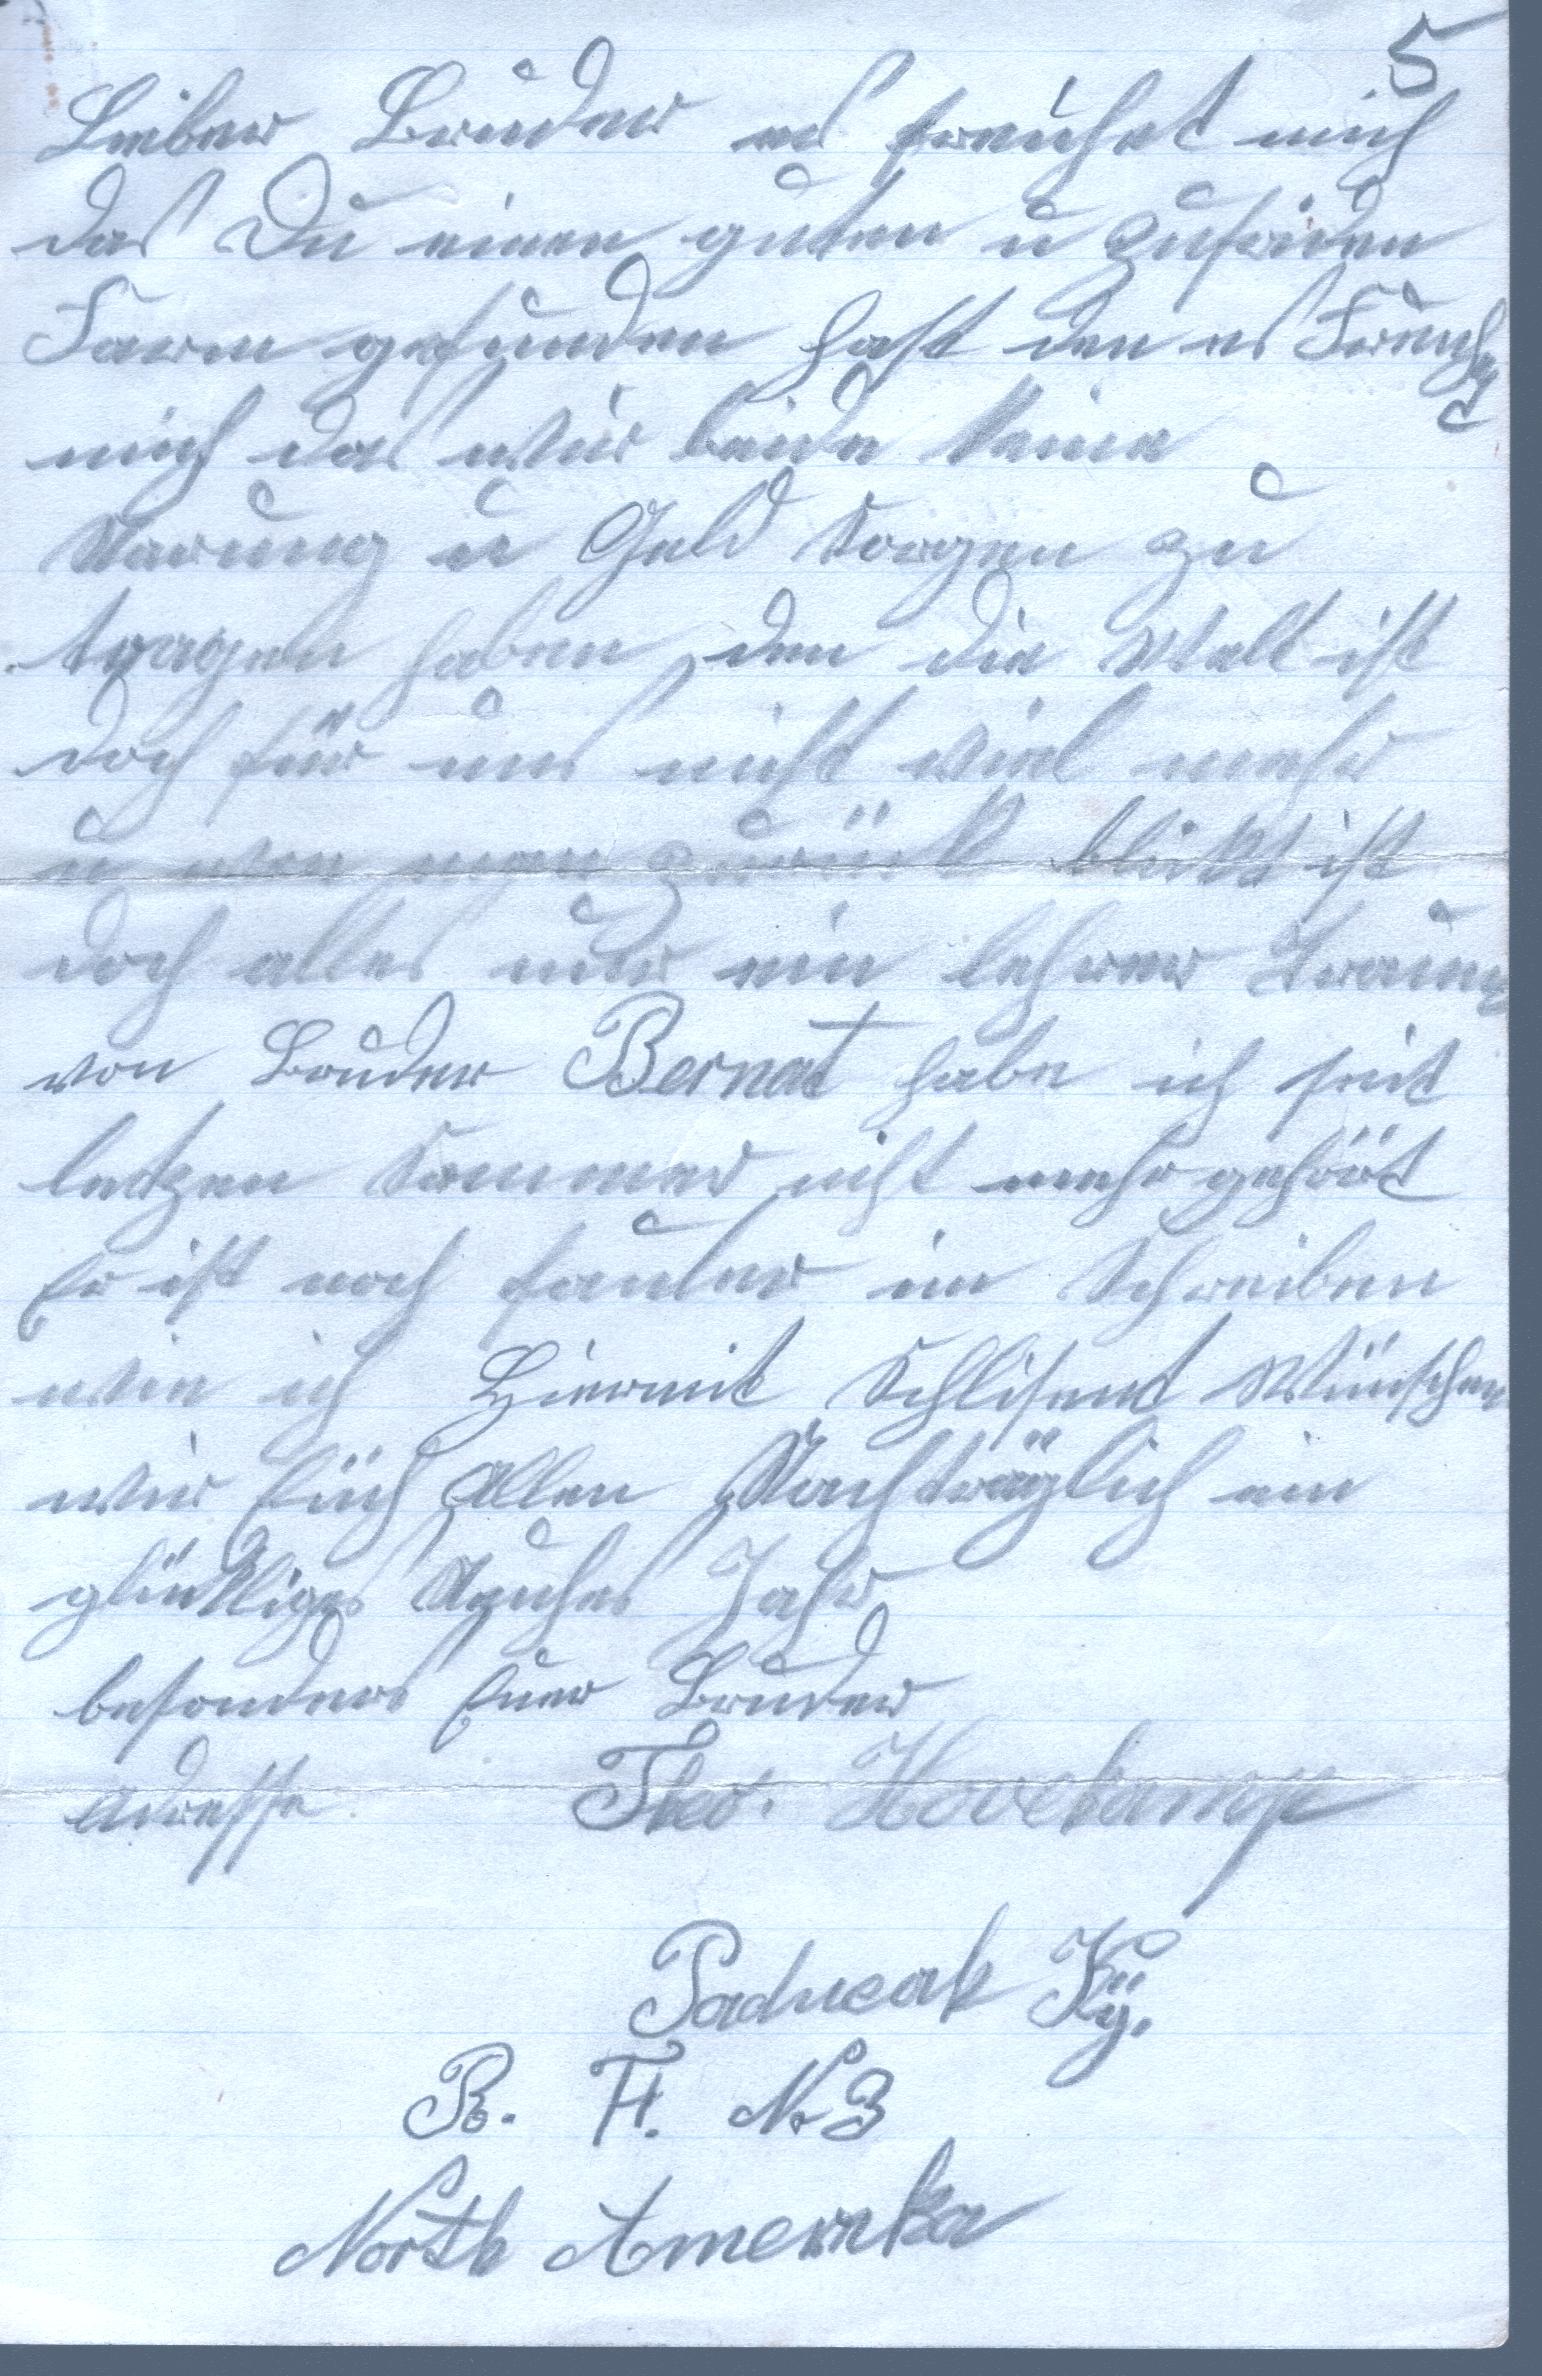 5
Lieber Bruder es freuhet mich
das Du einen guten u zufriden
Farm gefunden hast den es Freuhet
mich das wir beide keine
Narung u Geld Sorgen zu
tragen haben den die Welt ist
doch für uns nicht viel mehr
u wen man zurück blickt ist
doch alles nur ein lehrer Traum
von Bruder Bernat habe ich seit
letzen Sommer nicht mehr gehört
Er ist noch fauler im Schreiben
wie ich Hiermit Schlisend Wünschen
wir Euch allen Nachträglich ein
glückliges Neuhes Jahr
besonders Euer Bruder
adresse Theo. Hovekamp
Paducah Ky.
R. F. Nr 3
North Amerika